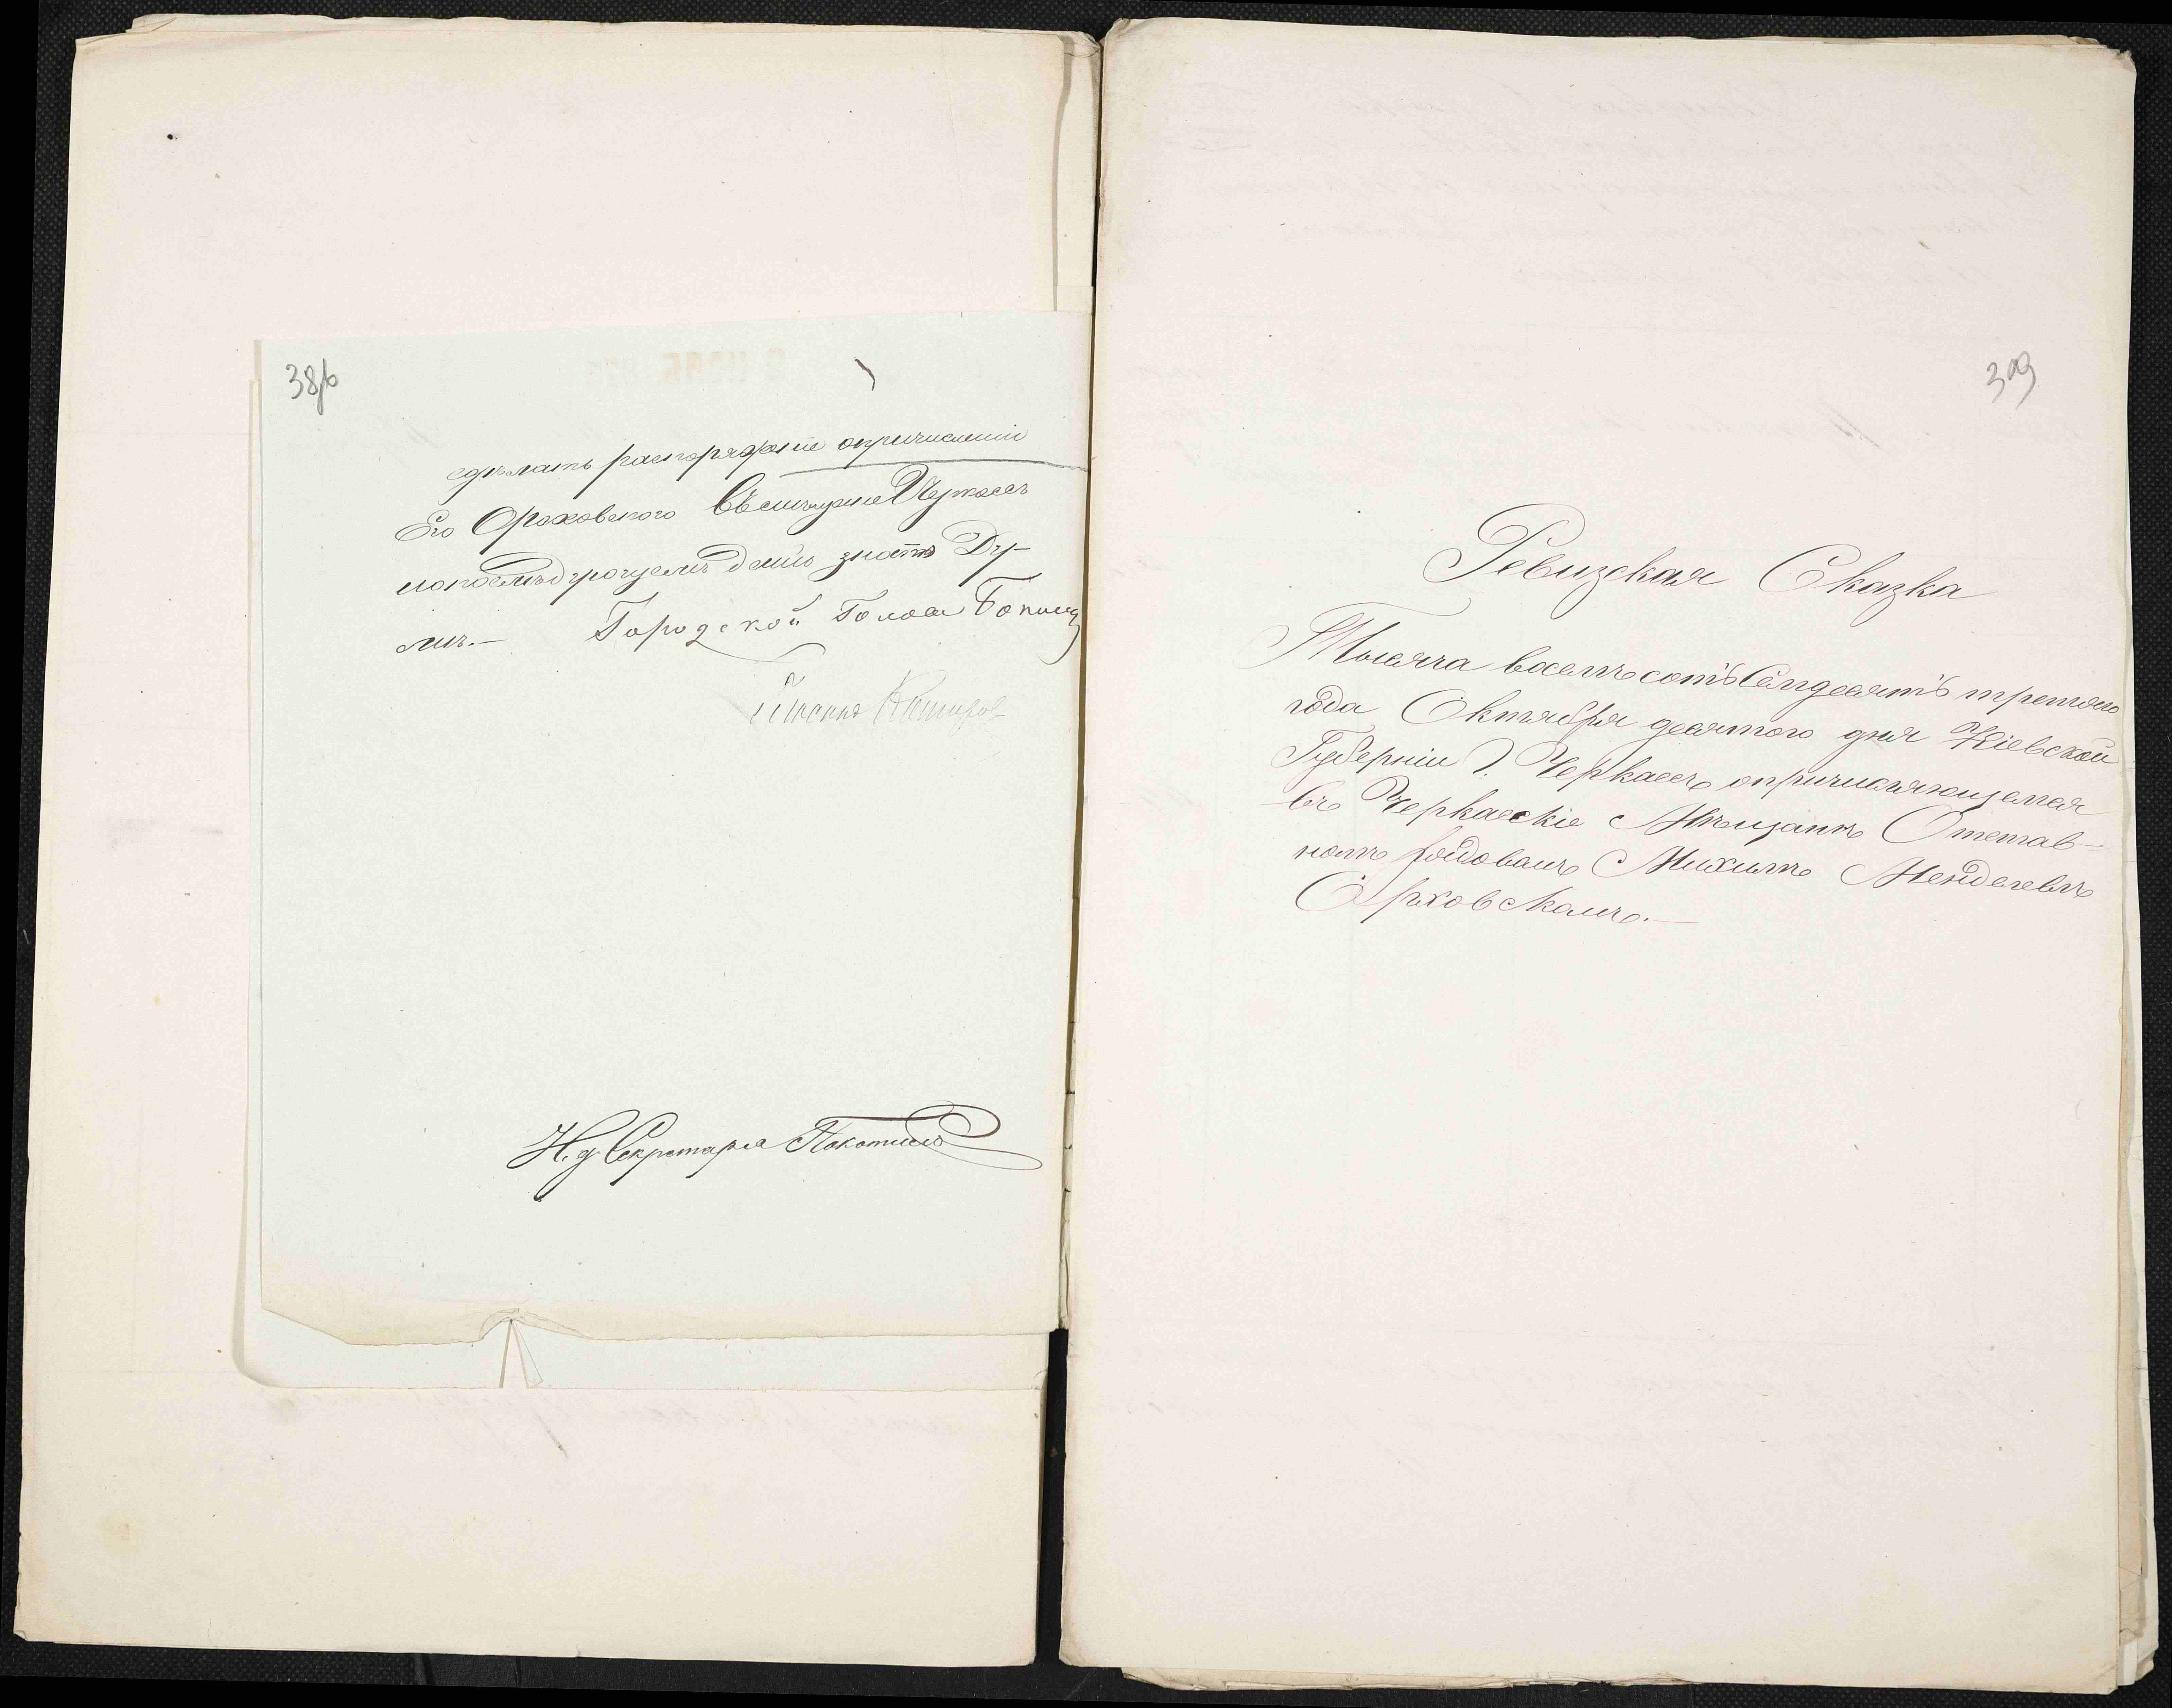 38б
сдѣлать распоряженіе опричисленіи
Его Ороховского въ мѣщане Черкасъ
дать знать Ду-
мѣ.— Городской Голова
И. д. Секретаря Покотило
309
Ревизская Сказка
Тысяча восемьсотъ Семдесятъ третяго
года Октября десятого дня Кіевской
Губерніи Г. Черкасъ опричисляющемся
въ Черкаскіе Мѣщанѣ Отстав-
номъ рядовомъ Михилѣ Менделевѣ
Ороховскомъ.—